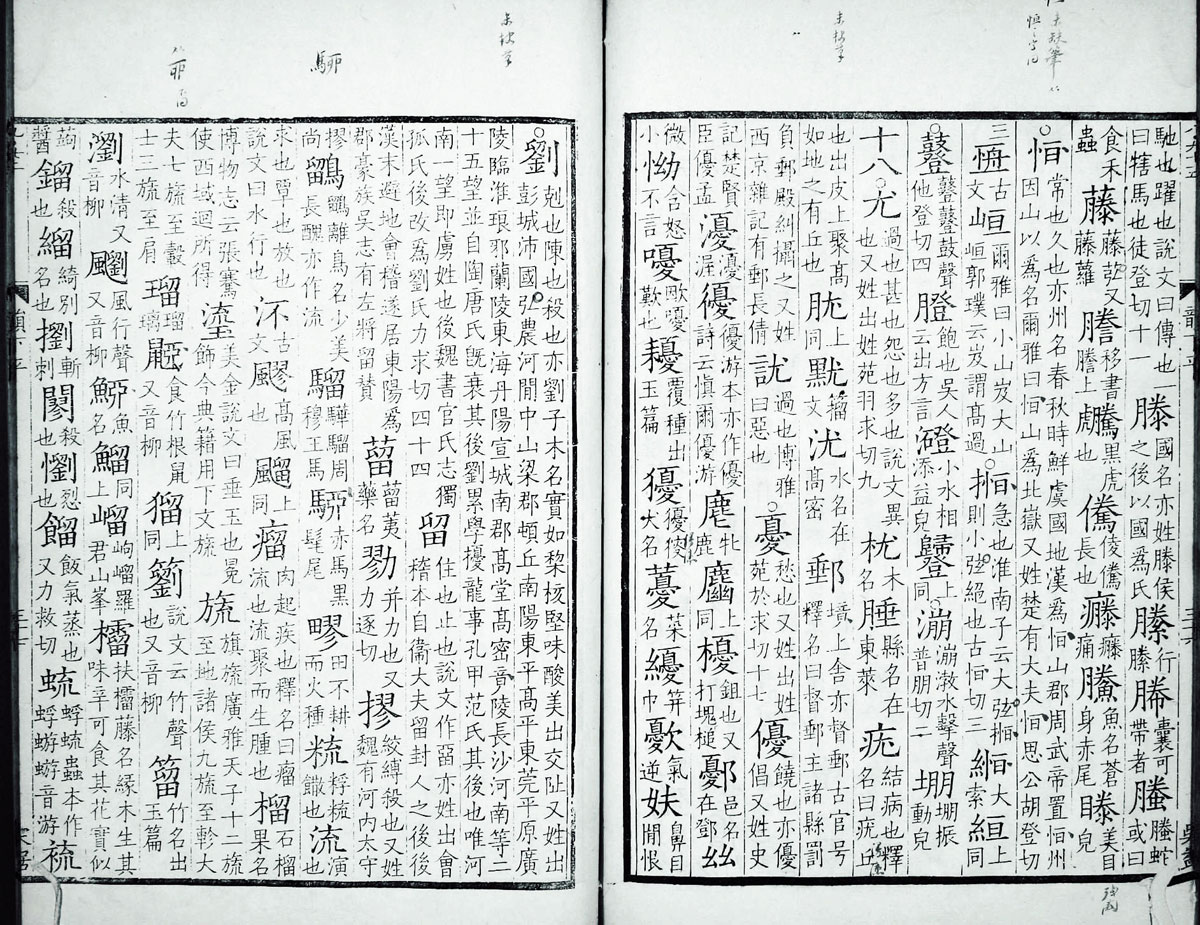 馳也躍也說文曰傳也一曰犗馬也徒登切十一滕國名亦姓滕侯之後以國爲氏縢行縢幐囊可帶者螣螣蛇或曰
食禾蟲藤藤苰又藤蘿謄移書謄上黑虎也儯㑄儯長也痛鰧魚名蒼身赤尾美目皃
○恒常也久也亦州名春秋時鮮虞國地漢爲恒山郡周武帝置恒州因山以爲名爾雅曰恒山爲北嶽又姓楚有大夫恒思公胡登切
三古文峘爾雅曰小山岌大山峘郭璞云岌謂高過○搄急也淮南子云大弦搄則小弦絕也古恒切三緪大索絚上同
○鼟鼟鼟鼓聲他登切四膯飽也吳人云出方言小水相添益皃上同○漰漰湱水擊聲普朋切二堋振動皃
十八○尤過也甚也怨也多也說文異也又姓出姓苑羽求切九木名腄縣名在東萊疣結病也釋名曰疣丘
也出皮上聚高如地之有丘也肬上同默籀文沋水名在高密郵境上舍亦督郵古官號釋名曰督郵主諸縣罰
負郵殿糾攝之又姓西京雜記有郵長倩訧過也博雅曰惡也○憂愁也又姓出姓苑於求切十七優饒也亦優倡又姓史
記楚賢臣優孟瀀瀀渥優游本亦作優詩云慎爾優游麀牝鹿上同櫌鉏也又打塊槌鄾邑名在鄧
微小怮含怒不言嚘歐嚘歎也耰覆種出玉篇犬名菜名纋笄巾氣逆妋鼻目閒恨
○劉剋也陳也殺也亦劉子木名實如棃核堅味酸美出交阯又姓出彭城沛國弘農河閒中山梁郡頓丘南陽東平高平東莞平原廣
陵臨淮琅邪蘭陵東海丹陽宣城南郡高堂高密竟陵長沙河南等二十五望並自陶唐氏旣衰其後劉累學擾龍事孔甲范氏其後也唯河
南一望即虜姓也後魏書官氏志獨孤氏後改爲劉氏力求切四十四留住也止也說文作畱亦姓出會稽本自衞大夫留封人之後後
漢末避地會稽遂居東陽爲郡豪族吳志有左將留贊蒥蒥荑藥名勠并力也又力逐切摎絞縛殺也又姓魏有河內太守
摎尚鶹鸝離鳥名少美長醜亦作流騮驊騮周穆王馬駵赤馬黑髦尾疁田不耕而火種饊也流演
求也覃也放也說文曰水行也古文飂高風也飀上同瘤肉起疾也釋名曰瘤流也流聚而生腫也榴石榴果名
博物志云張騫使西域迴所得瑬美金說文曰垂玉也冕飾今典籍用下文旒旒旗旒廣雅天子十二旒至地諸侯九旒至軫大
夫七旒至轂士三旒至肩瑠瑠璃食竹根鼠又音柳上同說文云竹聲也又音柳竹名出玉篇
瀏水清又音柳風行聲又音柳魚名鰡上同嵧岣嵧羅君山峯扶藤名緣木生其味辛可食其花實似
蒟醬鎦殺也綺別名也斬刺殺也懰烈也餾飯氣蒸也又力救切蜉蟲本作蜉蝣蝣音游